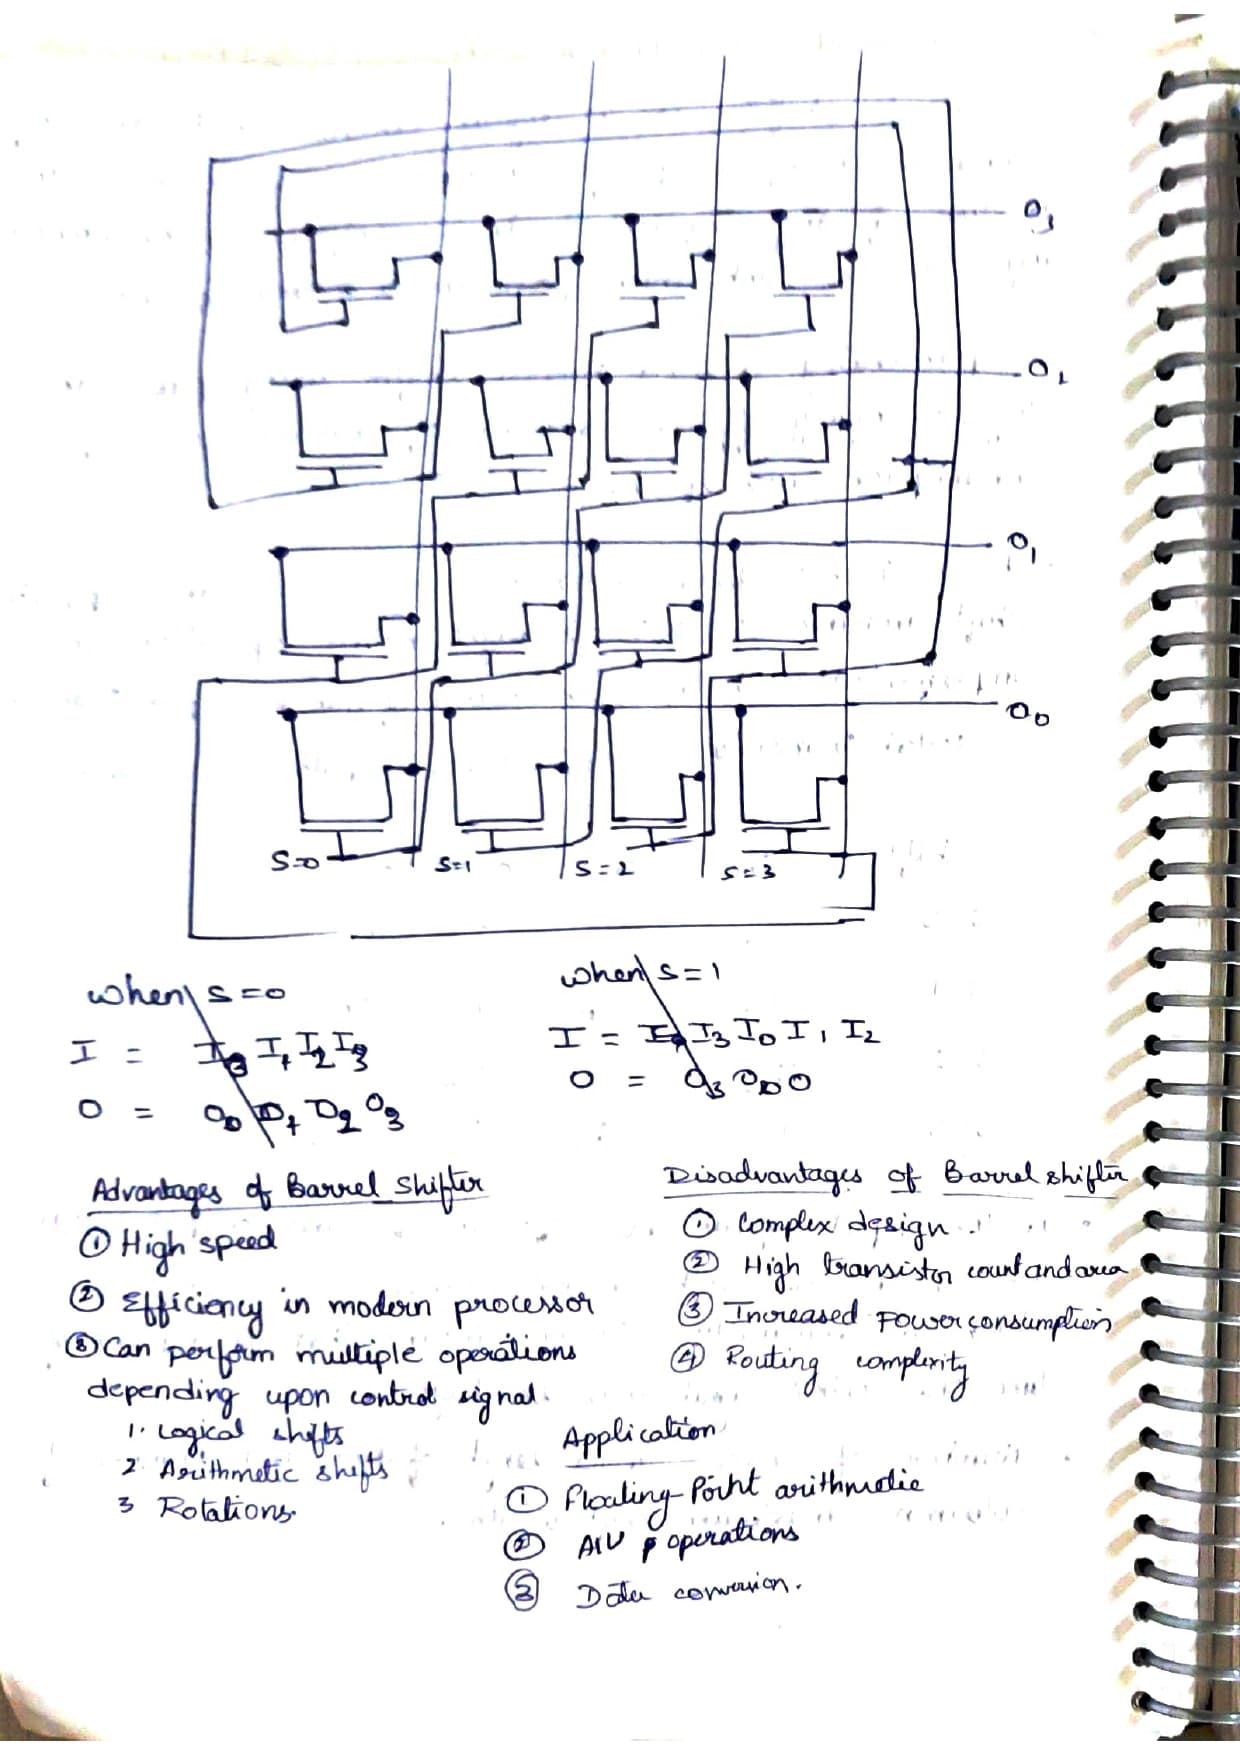 O3
O2
O1
O0
S=0
S=1
S=2
S=3
when S=0
I = I1 I2 I3
O = O0 O1 O2 O3
when S=1
I = I3 I0 I1 I2
O = O3
Advantages of Barrel Shifter
① High speed
② Efficiency in modern processor
③ Can perform multiple operations
depending upon control signal.
1. Logical shifts
2 Arithmetic shifts
3 Rotations.
Disadvantages of Barrel shifter
① Complex design.
② High transistor count and area
③ Increased Power consumption
④ Routing complexity
Application
① Floating-Point arithmetic
② AlU operations
③ Data conversion.